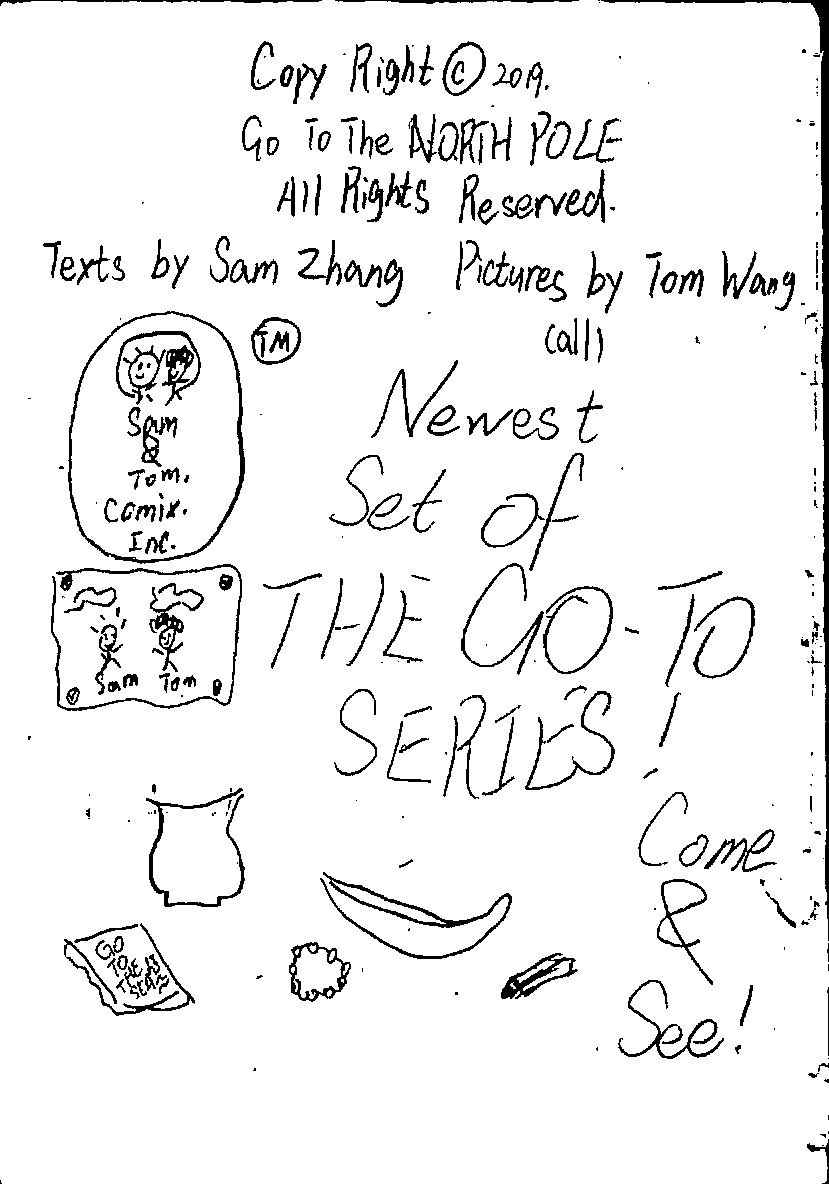 Copy Right © 2019.
Go To The NORTH POLE
All Rights Reserved.
Texts by Sam Zhang Pictures by Tom Wang
(all)
TM
Sam
&
Tom.
Comix.
Inc.
Newest
Set of
THE GO-TO
SERIES!
Sam Tom
Come
&
See!
GO
TO
THE
SEA